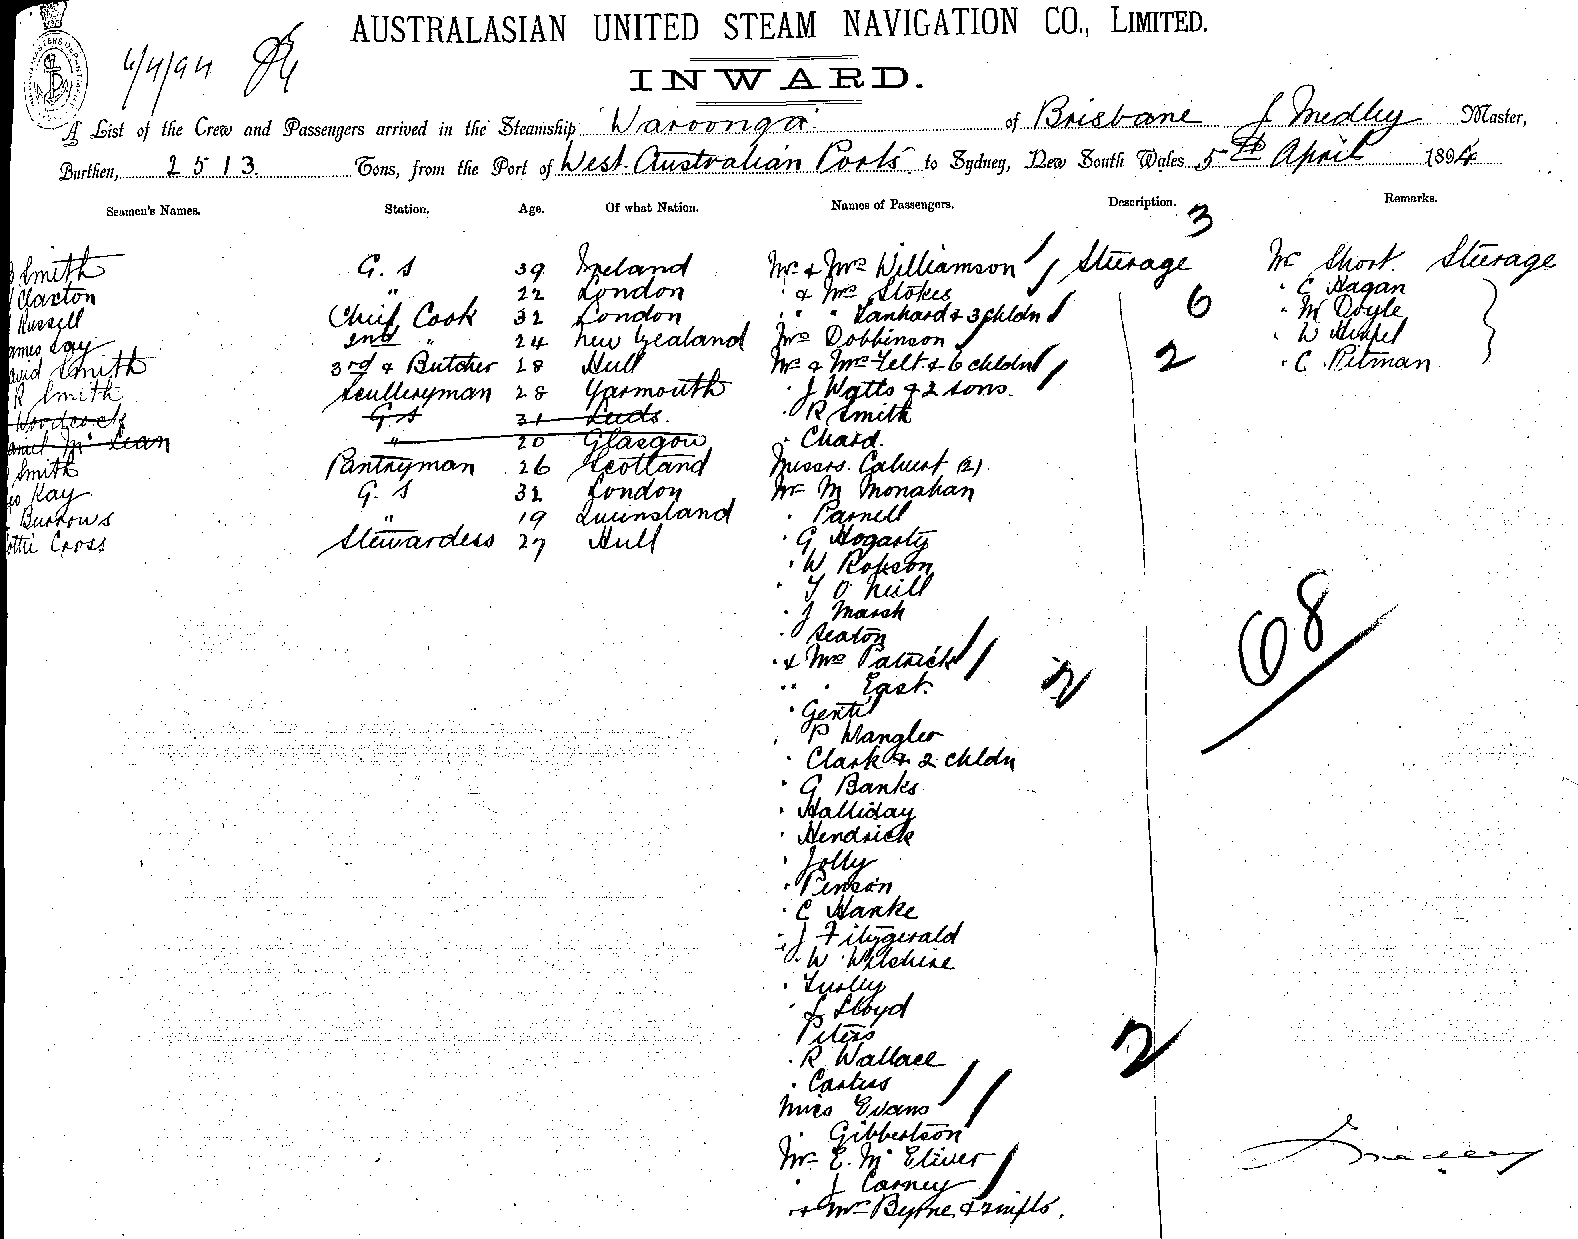 AUSTRALASIAN UNITED STEAM NAVIGATION CO., LIMITED.
6/4/94
INWARD.
A List of the Crew and Passengers arrived in the Steamship Waroonga of Brisbane J Medley Master,
Burthen, 2513 Tons, from the Port of West Australian Ports to Sydney, New South Wales 5th April 1894
Seamen's Names. Station. Age. Of what Nation. Names of Passengers. Description. Remarks.
3
Smith G. S 39 Ireland Mr & Mrs Williamson Steerage Mr Short. Steerage
Claxton " 22 London " & Mrs Stokes " C Hagan
Russell Chief Cook 32 London " " " Lanhard & 3 chldn 6 " M Doyle
James Lay 2nd " 24 New Zealand Mrs Dobbinson " W Hespel
David Smith 3rd & Butcher 28 Hull Mr & Mrs Felt & 6 chldn 2 " C Pitman
R Smith Sculleryman 28 Yarmouth " J Watts & 2 sons.
Woodcock G S 31 Leeds. " R Smith
McLean " 20 Glasgow " Chard.
Smith Pantryman 26 Scotland Messrs. Calvert (2)
Kay G. S 32 London Mr M Monahan
Burrows " 19 Queensland " Parnell
Lottie Cross Stewardess 27 Hull " G Hogarty
" W Robson
" T O'Neill
" J Marsh
" Seaton
" & Mrs Patrick
" " " East. 2
" Gentil
" P Wangler
" Clark & 2 chldn
" G Banks
" Halliday
" Hendrick
" Jolly
" Penson
" C Hanke
" J Fitzgerald
" W Wilshire
" Turley
" J Lloyd
" Peters
" R Wallace 2
" Carters
Miss Evans
" Gibbertson
Mr E. McEliver
" J Carney
" & Mrs Byrne & 2 infts.
68
J Medley